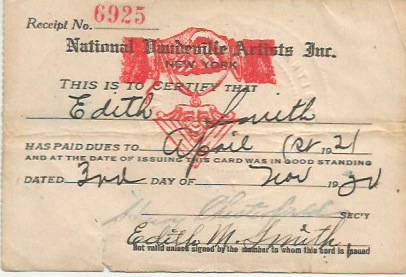 Receipt No. 6925
National Vaudeville Artists Inc.
NEW YORK
THIS IS TO CERTIFY THAT
Edith Smith
HAS PAID DUES TO April 1st 1921
AND AT THE DATE OF ISSUING THIS CARD WAS IN GOOD STANDING
DATED 3rd DAY OF Nov 19
SEC'Y
Edith M. Smith,
Not valid unless signed by the member to whom this card is issued